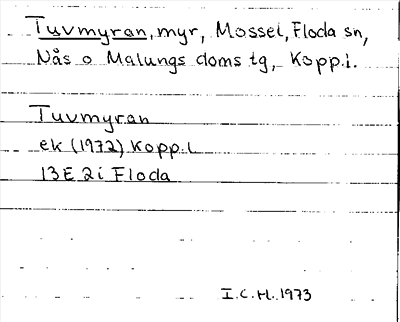 Tuvmyran, myr, Mossel, Floda sn,
Nås o Malungs doms tg, Kopp.l.
Tuvmyran
ek (1972) Kopp.l
13E 2i Floda
I.C.H. 1973